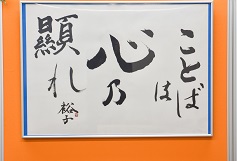 ことばは
心乃
顕れ
裕子